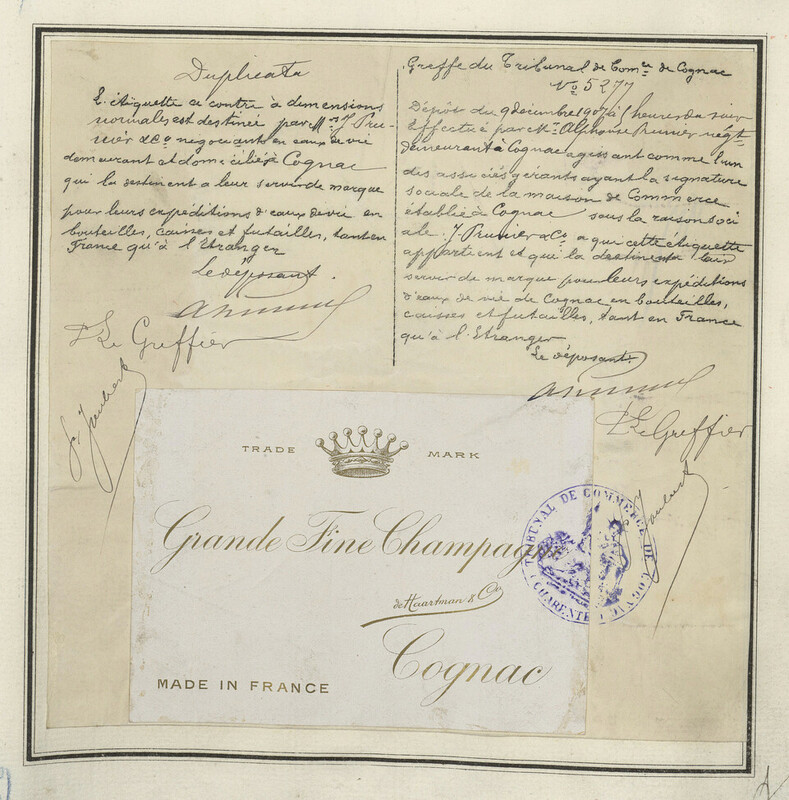 Duplicata
L'étiquette ci contre à dimensions
normales est destinée par MM. J. Pru-
nier & Co négociants en eaux de vie
demeurant et domiciliés à Cognac
qui la destinent a leur servir de marque
pour leurs expéditions d'eaux de vie en
bouteilles, caisses et futailles, tant en
France qu'à l'Etranger
Le déposant.
Le Greffier
Greffe du Tribunal de Comce de Cognac
No 5277
Dépôt du 9 décembre 1907 à heures du soir
Effectué par Mr. Alphonse Prunier négt
demeurant à Cognac agissant comme l'un
des associés gérants ayant la signature
sociale de la maison de Commerce
établie à Cognac sous la raison soci
ale J. Prunier & Co a qui cette étiquette
appartient et qui la destinent a leur
servir de marque pour leurs expéditions
d'eaux de vie de Cognac en bouteilles,
caisses et futailles, tant en France
qu'à l'Etranger
Le déposant
Le Greffier
TRADE MARK
Grande Fine Champagne
de Haartman & Co
Cognac
MADE IN FRANCE
TRIBUNAL DE COMMERCE DE COGNAC
(CHARENTE)